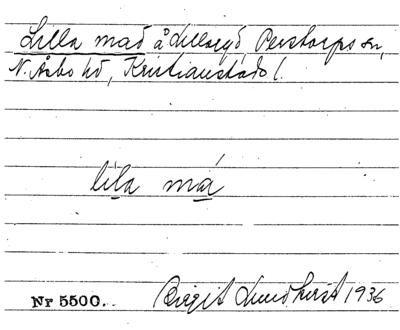 Lilla mad å Lillaryd Perstorps sn,
N. Åsbo hd, Kristianstads l.
lila már
Nr 5500. Birgit Lundkvist 1936